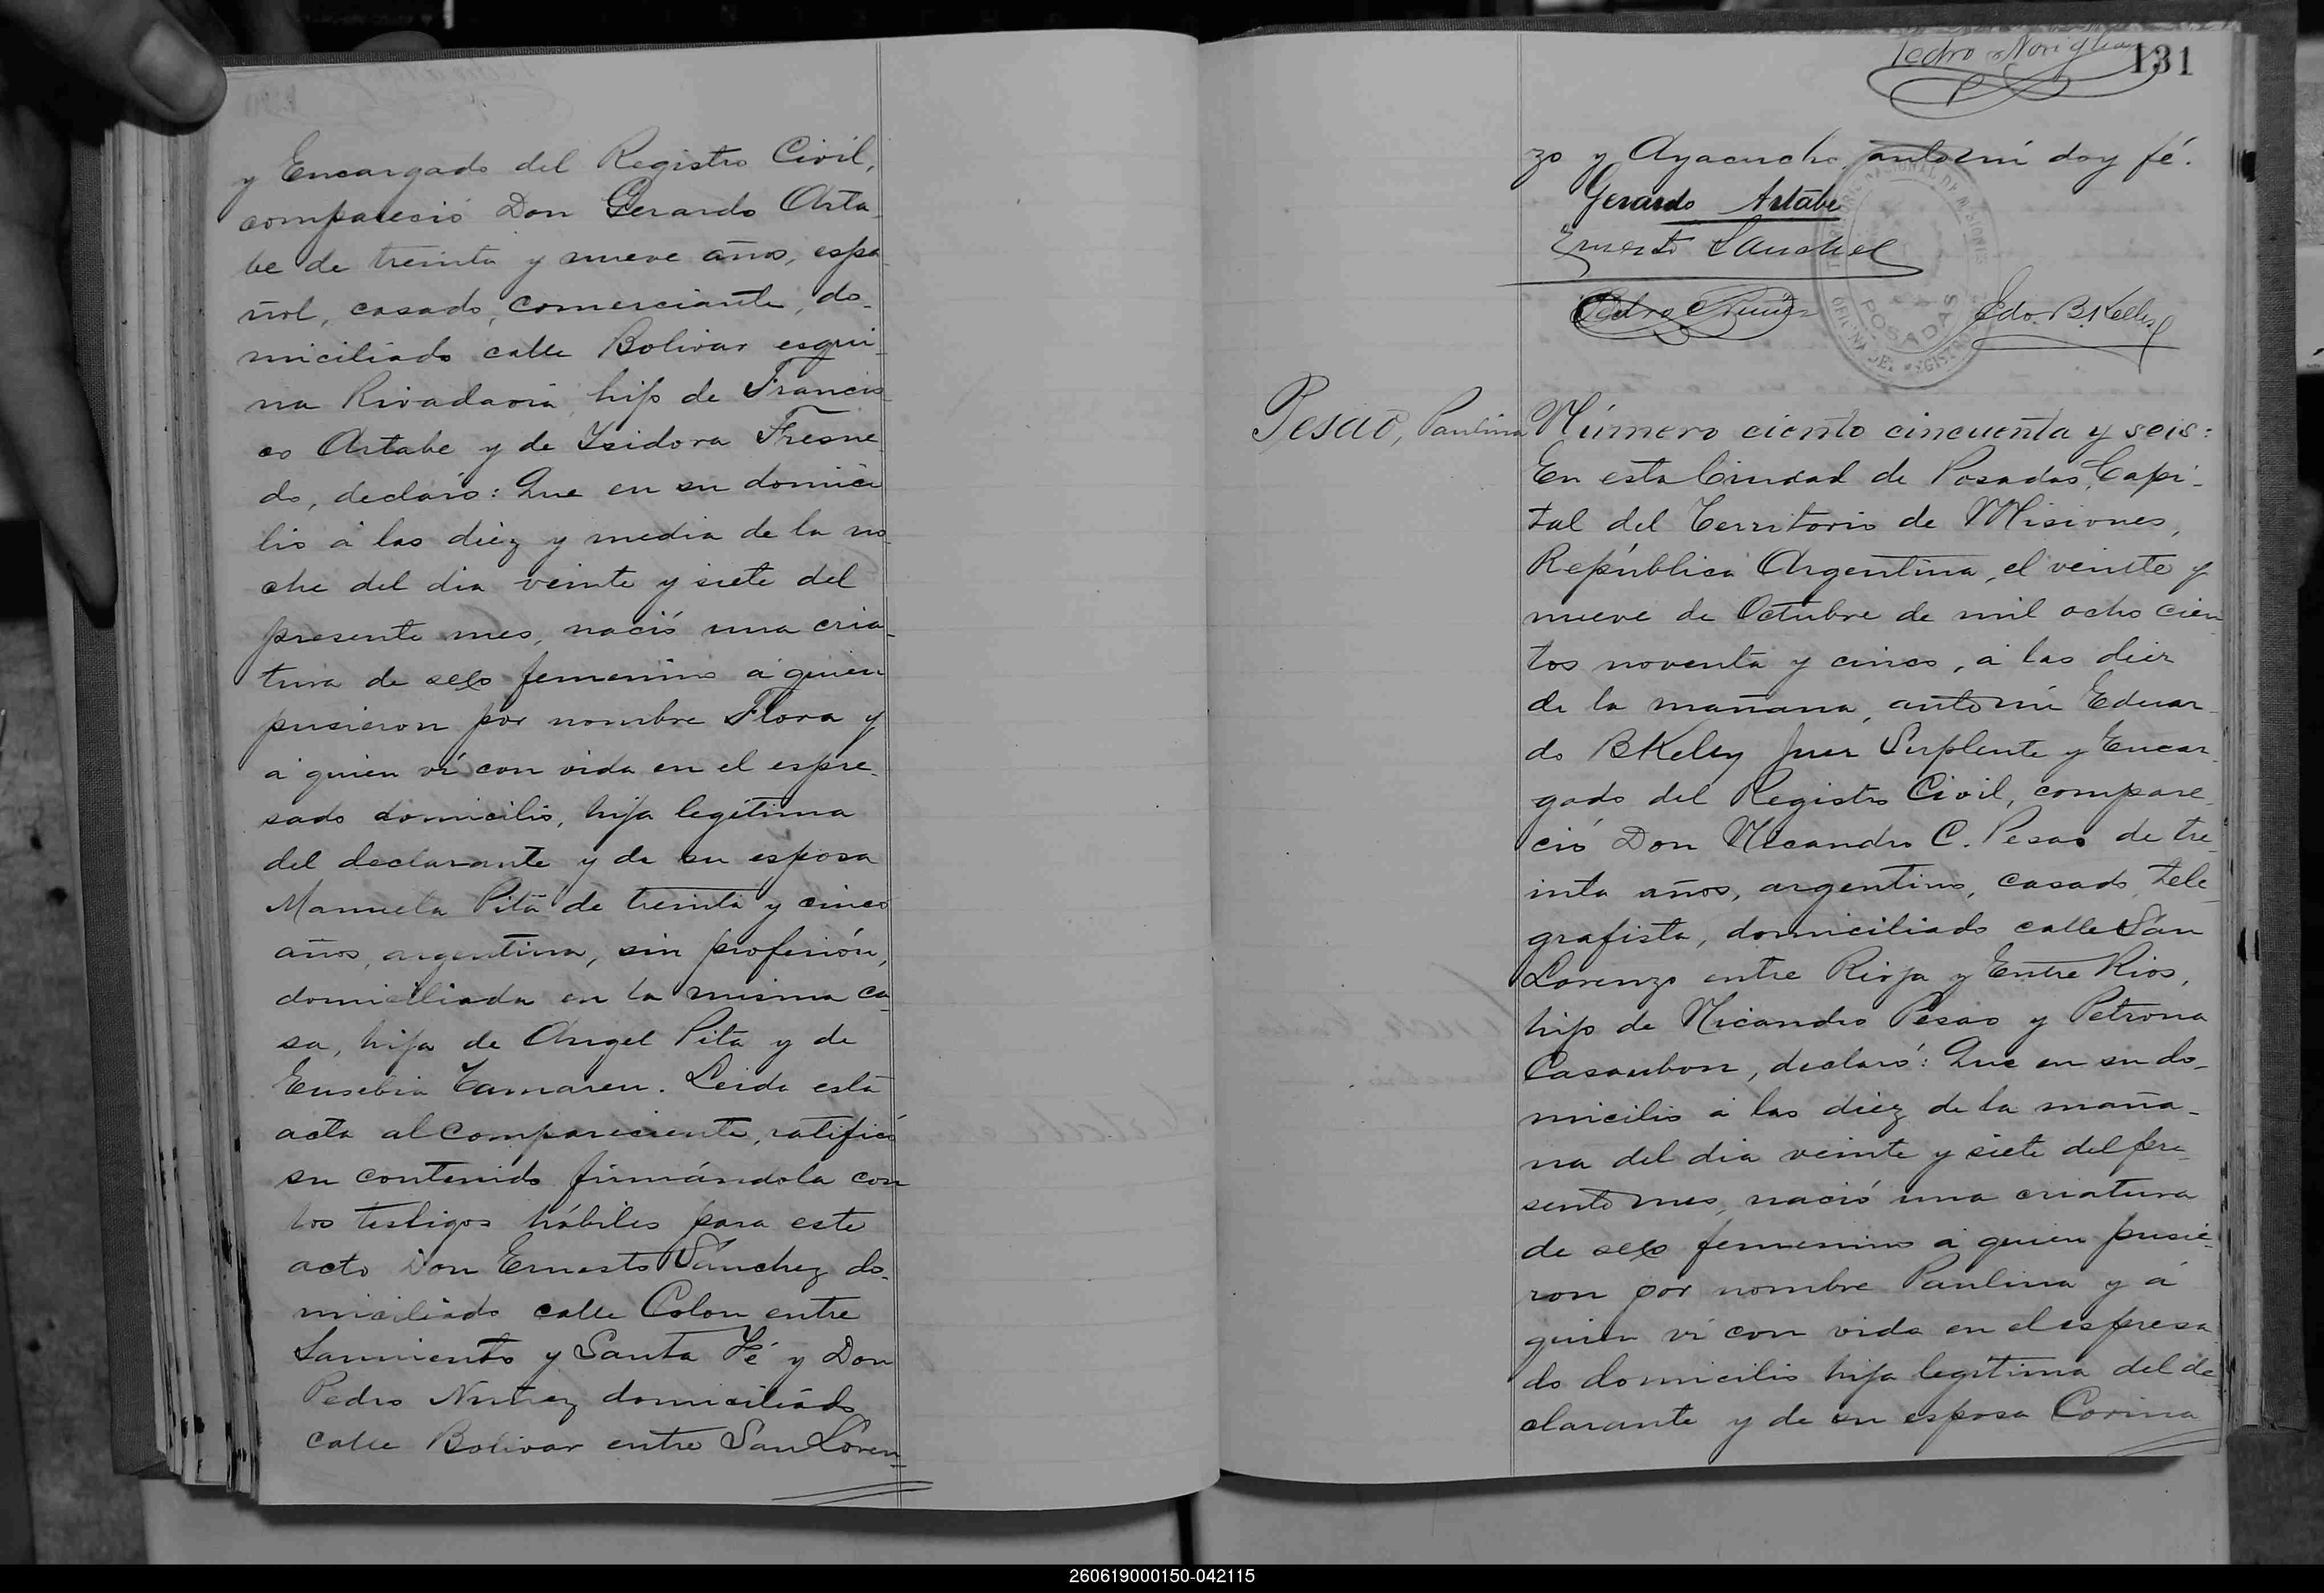 y Encargado del Registro Civil,
compareció Don Gerardo Arta
be de treinta y nueve años, espa
ñol, casado, comerciante, do-
miciliado calle Bolivar esqui-
na Rivadavia, hijo de Francis
co Artabe y de Isidora Fresne
do, declaró: Que en su domici
lio á las diez y media de la no
che del dia veinte y siete del
presente mes, nació una cria-
tura de sexo femenino á quien
pusieron por nombre Flora y
á quien ví con vida en el espre-
sado domicilio, hija legítima
del declarante y de su esposa
Manuela Pita de treinta y cinco
años, argentina, sin profesión,
domiciliada en la misma ca-
sa, hija de Angel Pita y de
Eusebia. Leida esta
acta al compareciente, ratificó
su contenido firmándola con
los testigos hábiles para este
acto Don Ernesto Sánchez do-
miciliado calle Colon entre
Sarmiento y Santa Fé y Don
Pedro Nuñez domiciliado
calle Bolivar entre San Loren-
Pedro
131
zo y Ayacucho, ante mí doy fé.
Gerardo Artabe
Ernesto Sanchez
Pedro Nuñez
Edo. B. Kelly
POSADAS
Pesao, Paulina
Número ciento cincuenta y seis:
En esta Ciudad de Posadas, Capi-
tal del Territorio de Misiones,
República Argentina, el veinte y
nueve de Octubre de mil ocho cien
tos noventa y cinco, á las diez
de la mañana, ante mí Eduar-
do B Kelly Juez Suplente y Encar-
gado del Registro Civil, compare-
ció Don Nicandro C. Pesao de tre-
inta años, argentino, casado, tele-
grafista, domiciliado calle San
Lorenzo entre Rioja y Entre Rios,
hijo de Nicandro Pesao y Petrona
Casaubon, declaró: Que en su do-
micilio á las diez de la maña-
na del dia veinte y siete del pre-
sente mes, nació una criatura
de sexo femenino á quien pusie-
ron por nombre Paulina y á
quien ví con vida en el espresa
do domicilio hija legítima del de
clarante y de su esposa Corina
260619000150-042115